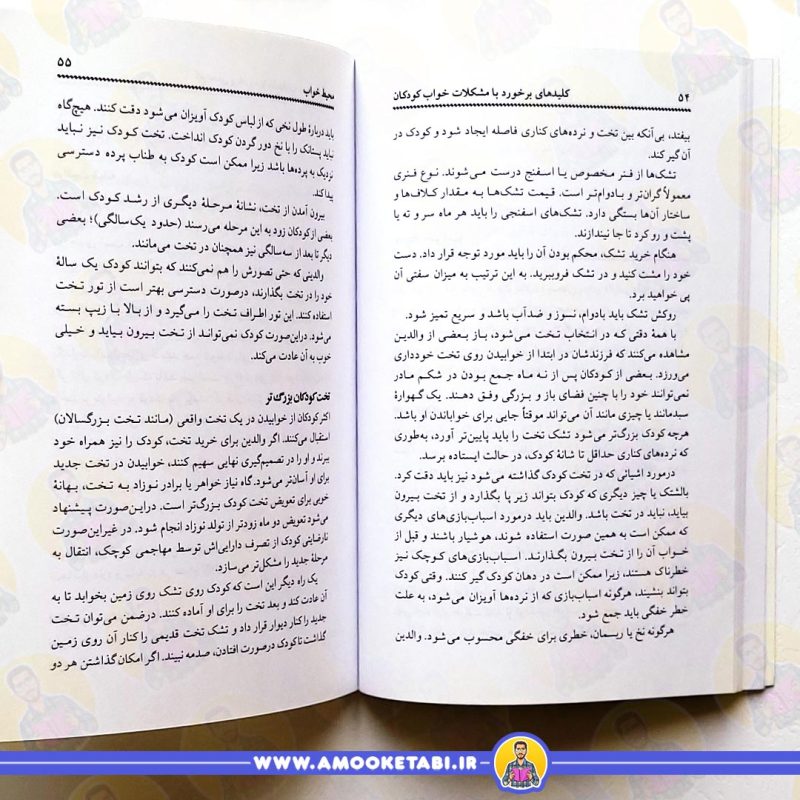 ۵۴ کلیدهای برخورد با مشکلات خواب کودکان
بیفتد، بی‌آنکه بین تخت و نرده‌های کناری فاصله ایجاد شود و کودک در
آن گیر کند.
تشک‌ها از فنر مخصوص یا اسفنج درست می‌شوند. نوع فنری
معمولاً گران‌تر و بادوام‌تر است. قیمت تشک‌ها به مقدار کلاف‌ها و
ساختار آن‌ها بستگی دارد. تشک‌های اسفنجی را باید هر ماه سر و ته یا
پشت و رو کرد تا جا نیندازند.
هنگام خرید تشک، محکم بودن آن را باید مورد توجه قرار داد. دست
خود را مشت کنید و در تشک فروببرید. به این ترتیب به میزان سفتی آن
پی خواهید برد.
روکش تشک باید بادوام، نسوز و ضدآب باشد و سریع تمیز شود.
با همهٔ دقتی که در انتخاب تخت می‌شود، باز بعضی از والدین
مشاهده می‌کنند که فرزندشان در ابتدا از خوابیدن روی تخت خودداری
می‌ورزد. بعضی از کودکان پس از نه ماه جمع بودن در شکم مادر
نمی‌توانند خود را با چنین فضای باز و بزرگی وفق دهند. یک گهوارهٔ
سبدمانند یا چیزی مانند آن می‌تواند موقتاً جایی برای خواباندن او باشد.
هرچه کودک بزرگ‌تر می‌شود تشک تخت را باید پایین‌تر آورد، به‌طوری
که نرده‌های کناری حداقل تا شانهٔ کودک، در حالت ایستاده برسد.
درمورد اشیائی که در تخت کودک گذاشته می‌شود نیز باید دقت کرد.
بالشتک یا چیز دیگری که کودک بتواند زیر پا بگذارد و از تخت بیرون
بیاید، نباید در تخت باشد. والدین باید درمورد اسباب‌بازی‌های دیگری
که ممکن است به همین صورت استفاده شوند، هوشیار باشند و قبل از
خواب آن را از تخت بیرون بگذارند. اسباب‌بازی‌های کوچک نیز
خطرناک هستند، زیرا ممکن است در دهان کودک گیر کنند. وقتی کودک
بتواند بنشیند، هرگونه اسباب‌بازی که از نرده‌ها آویزان می‌شود، به علت
خطر خفگی باید جمع شود.
هرگونه نخ یا ریسمان، خطری برای خفگی محسوب می‌شود. والدین
محیط خواب ۵۵
باید دربارهٔ طول نخی که از لباس کودک آویزان می‌شود دقت کنند. هیچ‌گاه
نباید پستانک را با نخ دور گردن کودک انداخت. تخت کودک نیز نباید
نزدیک به پرده‌ها باشد زیرا ممکن است کودک به طناب پرده دسترسی
پیدا کند.
بیرون آمدن از تخت، نشانهٔ مرحلهٔ دیگری از رشد کودک است.
بعضی از کودکان زود به این مرحله می‌رسند (حدود یک‌سالگی)؛ بعضی
دیگر تا بعد از سه‌سالگی نیز همچنان در تخت می‌مانند.
والدینی که حتی تصورش را هم نمی‌کنند که بتوانند کودک یک سالهٔ
خود را در تخت بگذارند، درصورت دسترسی بهتر است از تور تخت
استفاده کنند. این تور اطراف تخت را می‌گیرد و از بالا با زیپ بسته
می‌شود. دراین‌صورت کودک نمی‌تواند از تخت بیرون بیاید و خیلی
خوب به آن عادت می‌کند.
تخت کودکان بزرگ‌تر
اکثر کودکان از خوابیدن در یک تخت واقعی (مانند تخت بزرگسالان)
استقبال می‌کنند. اگر والدین برای خرید تخت، کودک را نیز همراه خود
ببرند و او را در تصمیم‌گیری نهایی سهیم کنند، خوابیدن در تخت جدید
برای او آسان‌تر می‌شود. گاه نیاز خواهر یا برادر نوزاد به تخت، بهانهٔ
خوبی برای تعویض تخت کودک بزرگ‌تر است. دراین‌صورت پیشنهاد
می‌شود تعویض دو ماه زودتر از تولد نوزاد انجام شود. در غیراین‌صورت
نارضایتی کودک از تصرف دارایی‌اش توسط مهاجمی کوچک، انتقال به
مرحلهٔ جدید را مشکل‌تر می‌سازد.
یک راه دیگر این است که کودک روی تشک روی زمین بخوابد تا به
آن عادت کند و بعد تخت را برای او آماده کنند. درضمن می‌توان تخت
جدید را کنار دیوار قرار داد و تشک تخت قدیمی را کنار آن روی زمین
گذاشت تا کودک درصورت افتادن، صدمه نبیند. اگر امکان گذاشتن هر دو
WWW.AMOOKETABI.IR